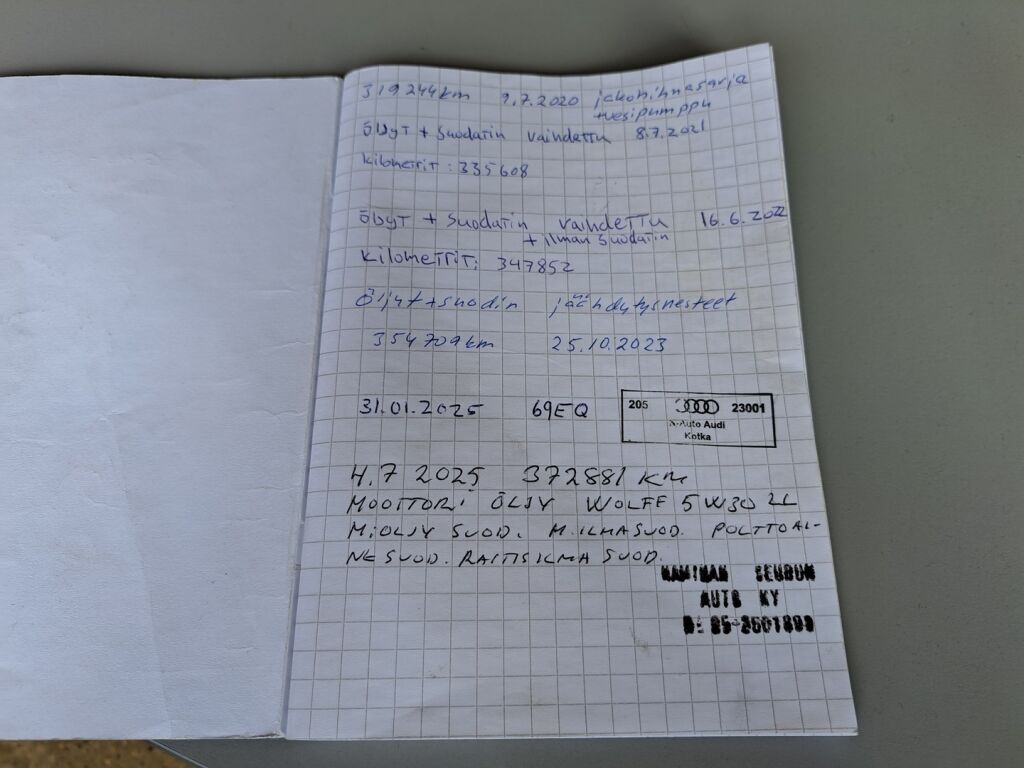 319244km 9.7.2020 jakohihnasarja
+vesipumppu
Öljyt + Suodatin vaihdettu 8.7.2021
kilometrit: 335608
Öljyt + Suodatin vaihdettu 16.6.2022
+ ilman suodatin
kilometrit: 347852
Öljyt+suodin jäähdytysnesteet
354709km 25.10.2023
31.01.2025 69EQ
205 23001
K-Auto Audi
Kotka
4.7 2025 372881 KM
MOOTTORI ÖLJY WOLFF 5W30 LL
M:ÖLJY SUOD. M.ILMASUOD. POLTTOAI-
NE SUOD. RAITISILMA SUOD.
HAMINAN SEUDUN
AUTO KY